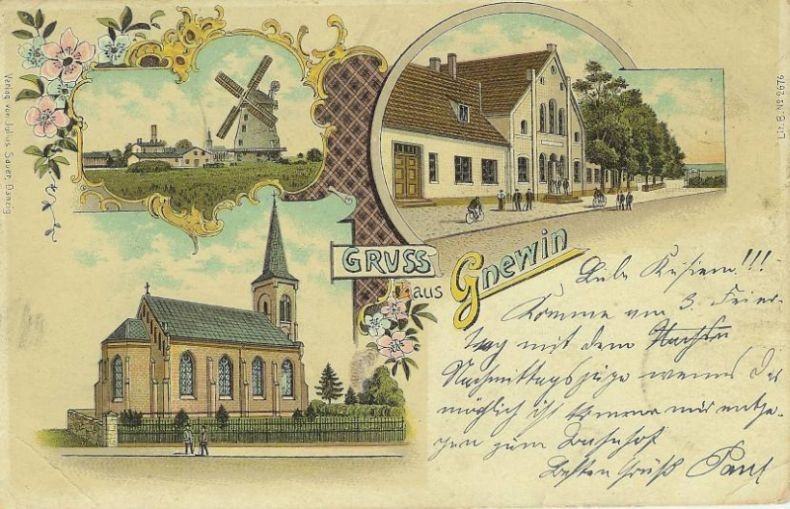 Verlag von Julius Sauer, Danzig
Lit. B. No 2676
GRUSS
aus Gnewin
Komme am 3. Feier-
tag mit dem
Nachmittagszüge wenns Dir
möglich ist komme mir entge-
gen zum Bahnhof
Besten Gruß Paul